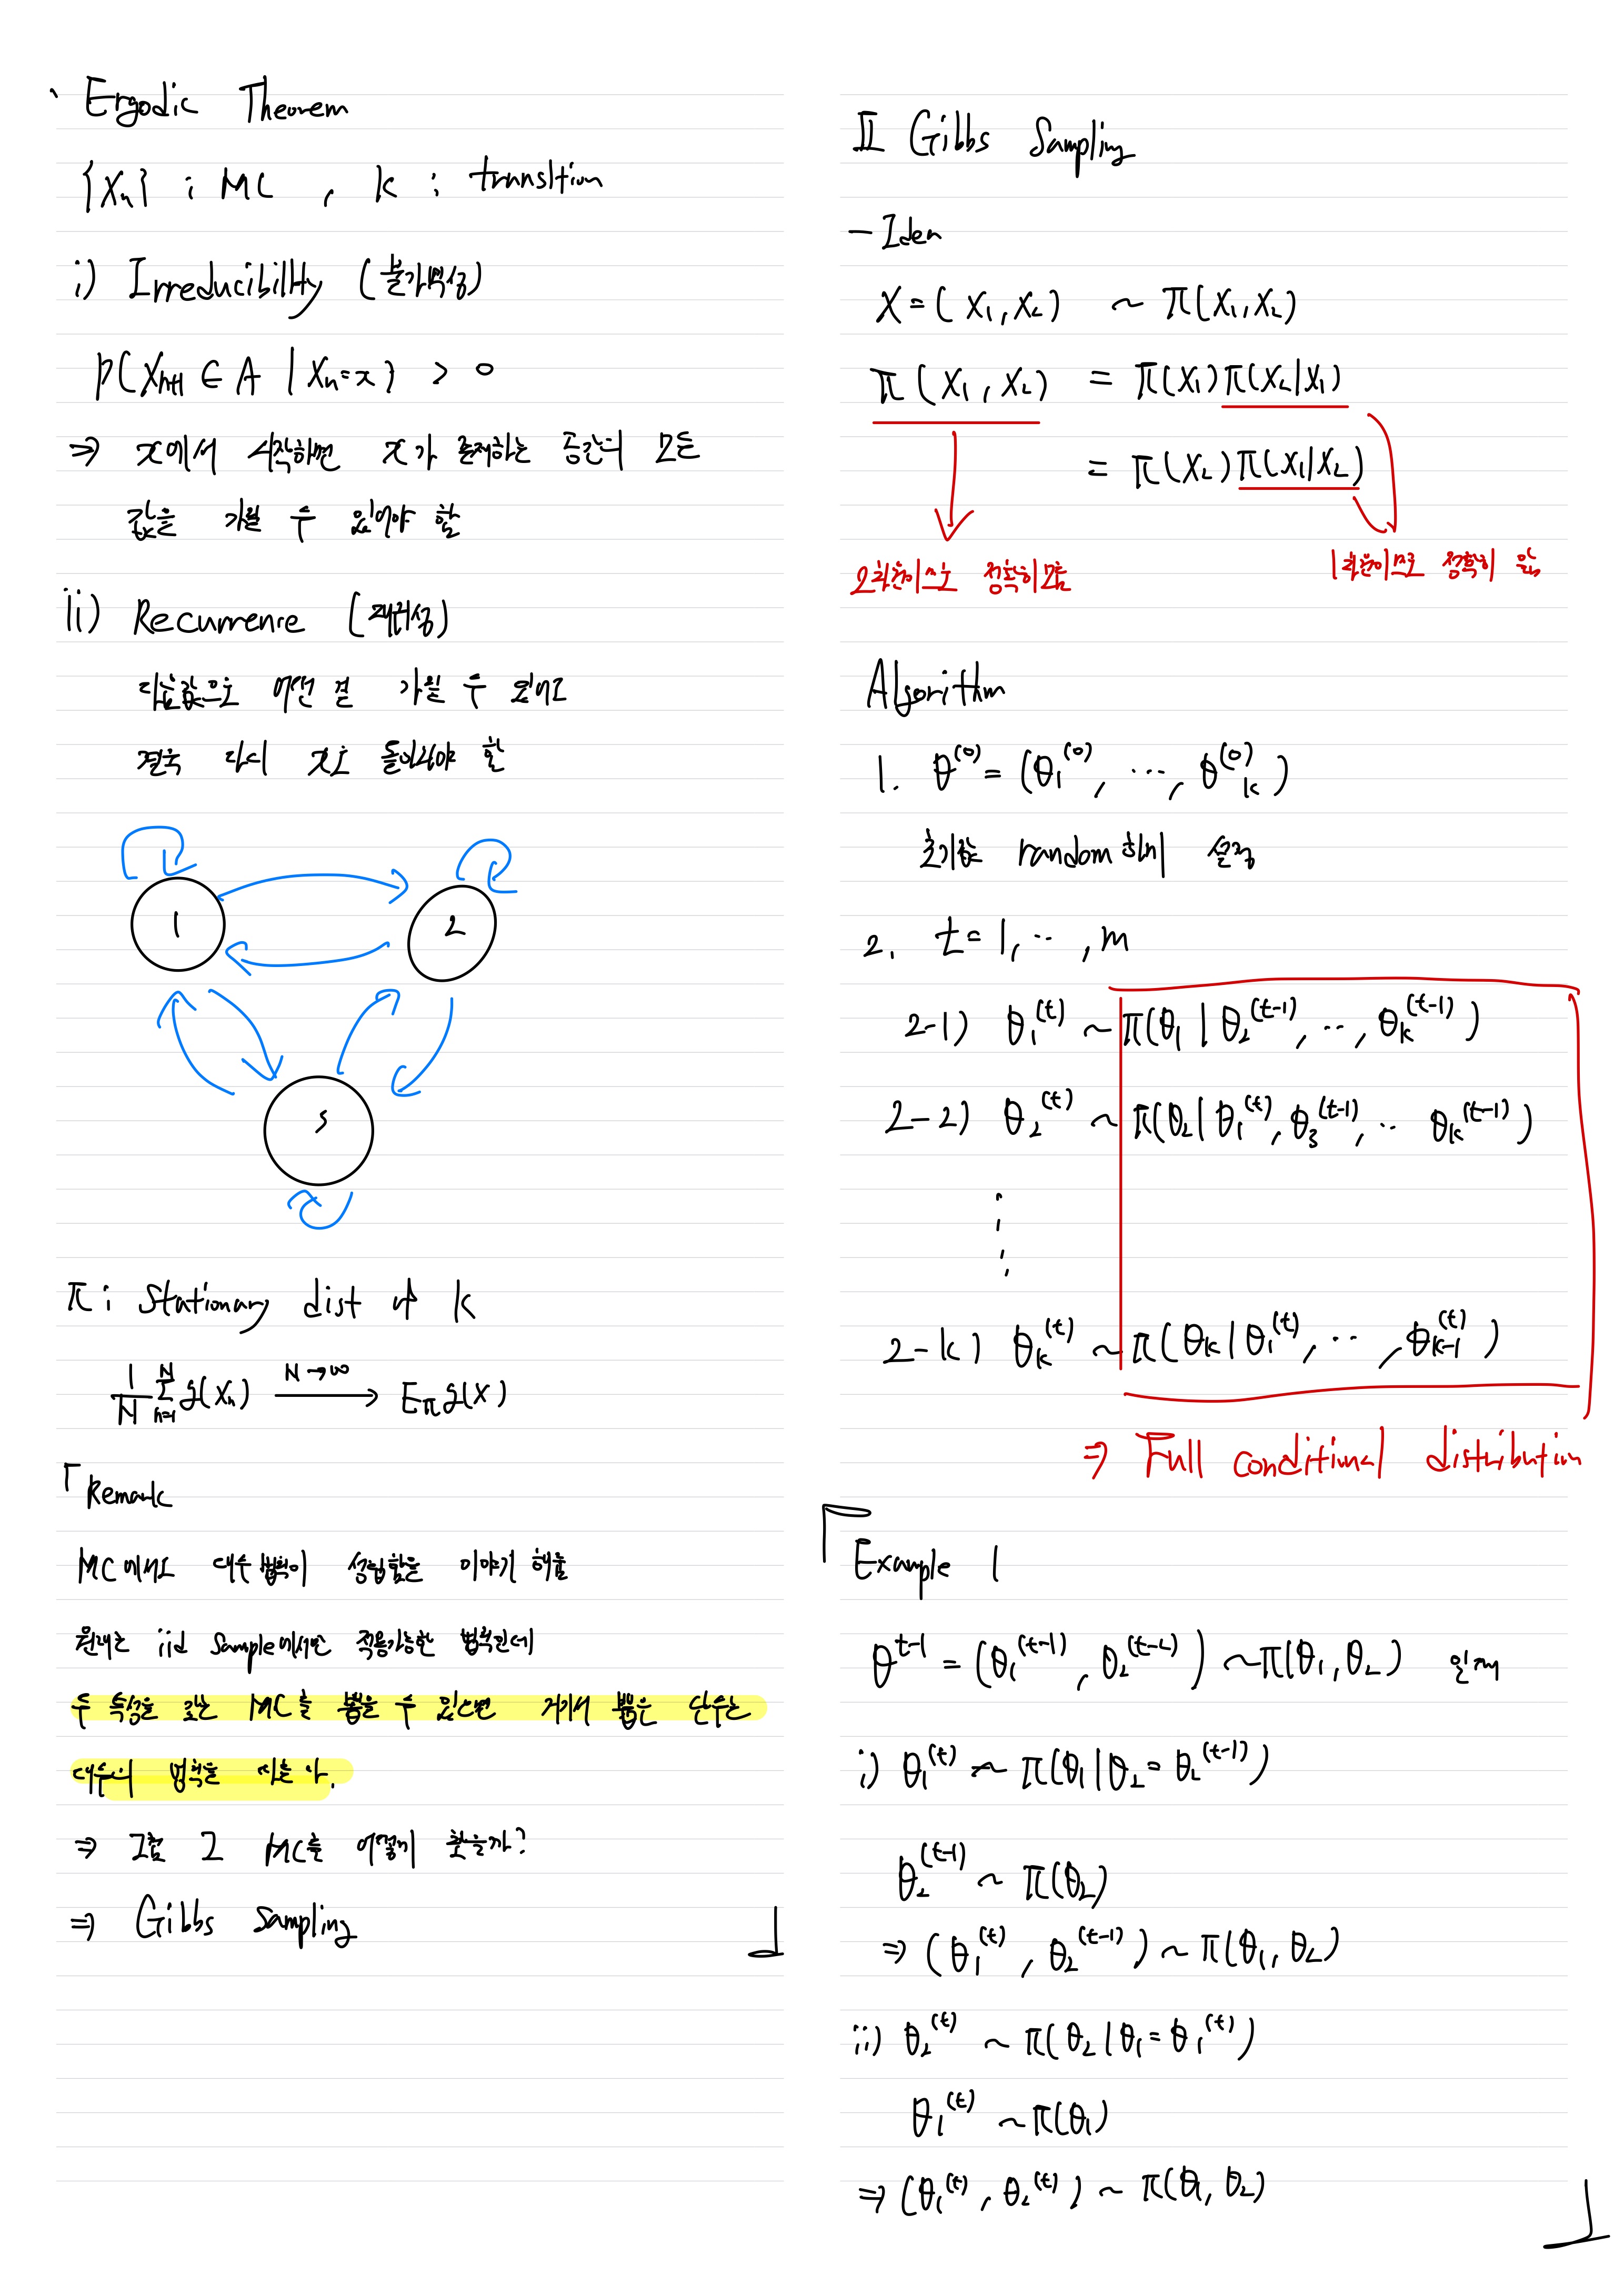 Ergodic Theorem
{Xn} : MC , K : transition
i) Irreducibility (불가약성)
P(Xn+1 ∈ A | Xn=x) > 0
⇒ x에서 시작하면 x가 존재하는 공간의 모든
값을 가질 수 있어야 함
ii) Recurrence (재귀성)
다음값으로 어떤 걸 가질 수 있어도
결국 다시 x로 돌아와야 함
1
2
3
π : Stationary dist of K
1/N Σ_{n=1}^{N} g(Xn) →(N→∞) E_π g(X)
「Remark
MC에서도 대수 법칙이 성립함을 이야기 해줌
원래는 iid sample에서만 적용가능한 법칙인데
두 속성을 갖는 MC를 뽑을 수 있으면 거기서 뽑은 난수는
대수의 법칙을 따른다.
⇒ 그럼 그 MC를 어떻게 찾을까?
⇒ Gibbs Sampling 」
II Gibbs Sampling
- Idea
X = (X1, X2) ~ π(X1, X2)
π(X1, X2) = π(X1)π(X2|X1)
= π(X2)π(X1|X2)
2차원이므로 정확히 모름
1차원이므로 정확히 앎
Algorithm
1. θ^(0) = (θ1^(0), ⋯, θk^(0))
초기값 random하게 설정
2. t=1, ⋯, m
2-1) θ1^(t) ~ π(θ1 | θ2^(t-1), ⋯, θk^(t-1))
2-2) θ2^(t) ~ π(θ2 | θ1^(t), θ3^(t-1), ⋯ θk^(t-1))
⋮
2-k) θk^(t) ~ π(θk | θ1^(t), ⋯, θk-1^(t))
⇒ Full conditional distribution
「Example 1
θ^t-1 = (θ1^(t-1), θ2^(t-1)) ~ π(θ1, θ2) 일 때
i) θ1^(t) ~ π(θ1 | θ2 = θ2^(t-1))
θ2^(t-1) ~ π(θ2)
⇒ (θ1^(t), θ2^(t-1)) ~ π(θ1, θ2)
ii) θ2^(t) ~ π(θ2 | θ1 = θ1^(t))
θ1^(t) ~ π(θ1)
⇒ (θ1^(t), θ2^(t)) ~ π(θ1, θ2) 」